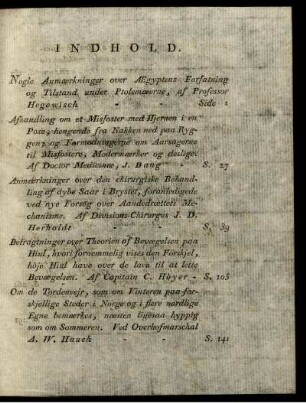 INDHOLD.
Nogle Anmærkninger over Ægyptens Forfatning
og Tilstand under Ptolemæerne, af Professor
Hegewisch - - Side 1
Afhandling om et Misfoster med Hjernen i en
Pose, hengende fra Nakken ned paa Ryg-
gen; og Formodningerne om Aarsagerne
til Misfostere, Modermærker og deslige.
Af Doctor Medicinæ, J. Bang - S. 27
Anmærkninger over den chirurgiske Behand-
ling af dybe Saar i Brystet, foranledigede
ved nye Forsøg over Aandedrættets Me-
chanisme. Af Divisions-Chirurgus J. D.
Herholdt - - S. 39
Betragtninger over Theorien af Bevægelsen paa
Hiul, hvori fornemmelig vises den Forskjel,
høje Hiul have over de lave til at lette
Bevægelsen. Af Capitain C. Høyer - S. 105
Om de Tordenvejr, som om Vinteren paa for-
skjellige Steder i Norge og i flere nordlige
Egne bemærkes, næsten ligesaa hyppig
som om Sommeren. Ved Overhofmarschal
A. W. Hauch - - S. 141